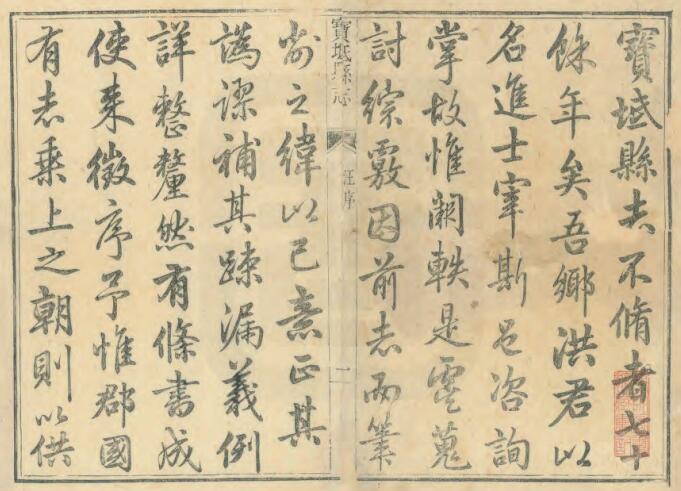 寶坻縣志不脩者七十
餘年矣吾鄉洪君以
名進士宰斯邑咨詢
掌故惟闕軼是虞蒐
討綜覈因前志而筆
寶坻縣志
汪序
一
削之緯以己意正其
譌謬補其踈漏義例
詳整釐然有條書成
使来徵序予惟郡國
有志乗上之朝則以供